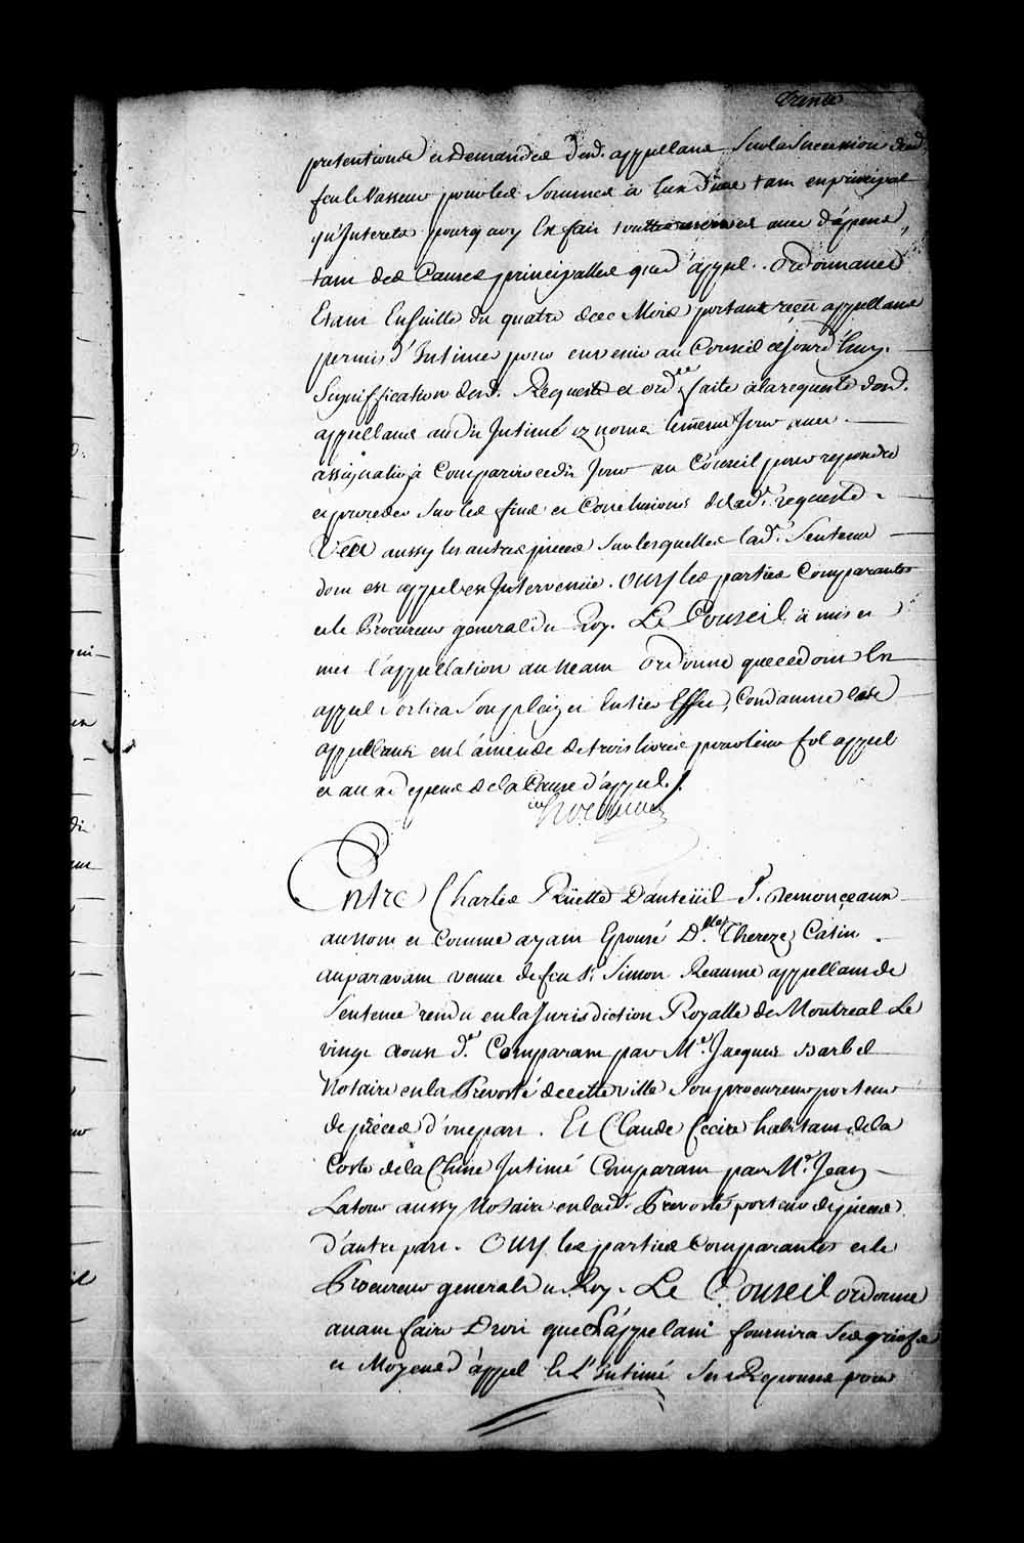 trente
pretentions et Demandes desd. appellans Sur la Succession dud.
feu le Vasseur pour les Sommes à Eux Dües tant en principal
qu'Interets pourquoy Ils fait avec dépens,
tant des Causes principalles que d'appel. ordonnance
Etant Ensuitte du quatre de ce Mois portant reçu appellans
permis d'Intimer pour en venir au Conseil cejourd'huy.
Signiffication desd. Requeste et ord.ce faite ala requeste desd.
appellans audit Intimé ez noms le mesme Jour avec
assignation à Comparoir cedit Jour au Conseil pour repondre
et proceder Sur les fins et Conclusions de lad. requeste.
Veu aussy les autres pieces Sur lesquelles lad. Sentence
dont est appel est Intervenüe. OUY les parties Comparantes
et le Procureur general du Roy. Le Conseil à mis et
met l'appellation au neant ordonne que ce dont Est
appel Sortira Son plein et Entier Effet, Condamne les
appellants en l'amende de trois livres pour leur fol appel
et aux depens de la Cause d'appel./.
Hocquart
Entre Charles Rüette Dauteüil S. de monceaux
au nom et Comme ayant Epousé D.lle Thereze Catin
auparavant veuve de feu S. Simon Reaume appellant de
Sentence rendu en la Jurisdiction Royalle de Montreal Le
vingt aoust d.r Comparant par M.e Jacques Barbel
Notaire en la Prevosté de cette ville Son procureur porteur
de pièces d'une part. Et Claude Cecire habitant de la
Coste de la Chine Intimé Comparant par M.e Jean
Latour aussy Notaire en lad. Prevosté porteur de pieces
d'autre part. OUY les parties Comparantes et le
Procureur general du Roy. Le Conseil ordonne
avant faire Droit que L'appelant fournira Ses griefs
et Moyens d'appel Et L'Intimé Ses Reponses pour